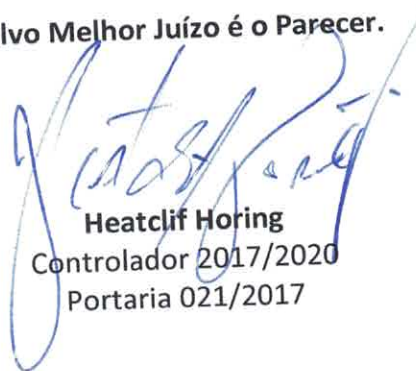 lvo Melhor Juízo é o Parecer.
Heatclif Horing
Controlador 2017/2020
Portaria 021/2017